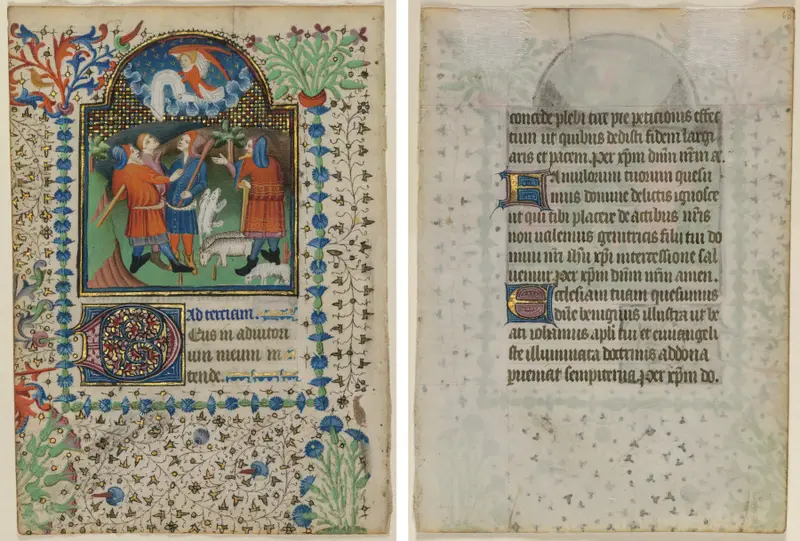 Ad terciam.
Deus in adiutori
um meum in
tende.
concede plebi tue pie peticionis effec
tum ut quibus dedisti fidem largi
aris et pacem. Per xp̄m dn̄m nr̄m ac
Famulorum tuorum quesu
mus domine delictis ignosce
ut qui tibi placere de actibus nr̄is
non ualemus genitricis filii tui do
mini nr̄i ih̄u xp̄i intercessione sal
uemur. Per xp̄m dn̄m nr̄m amen.
Ecclesiam tuam quesumus
dn̄e benignus illustra ut be
ati iohannis apl̄i tui et euuangeli
ste illuminata doctrinis ad dona
perueniat sempiterna. Per xp̄m do.